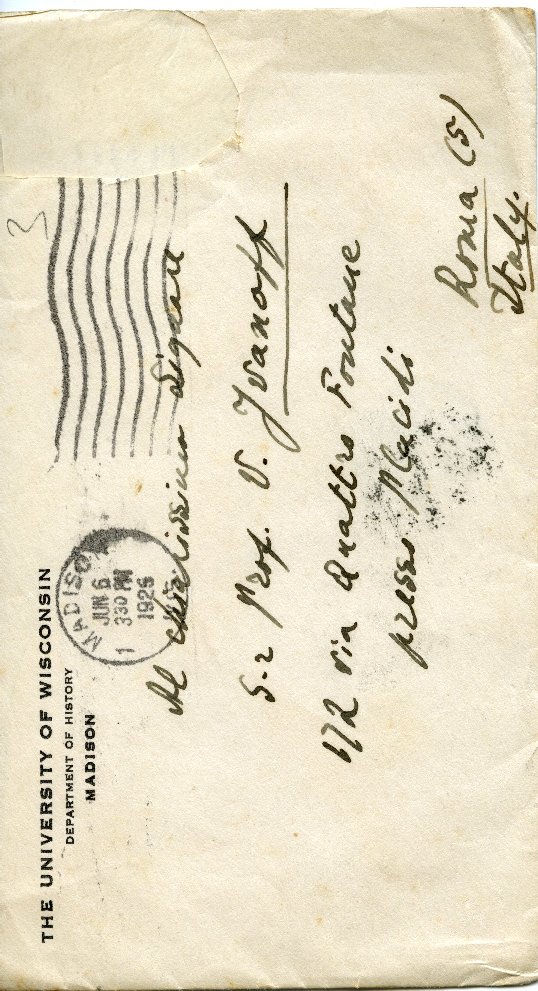 THE UNIVERSITY OF WISCONSIN
DEPARTMENT OF HISTORY
MADISON
MADISON
JUN 6
330 PM
1925
1
3
Al chiarissimo Signore
S-r Prof. V. Ivanoff
172 via Quattro Fontane
presso Placidi
Roma (5)
Italy.